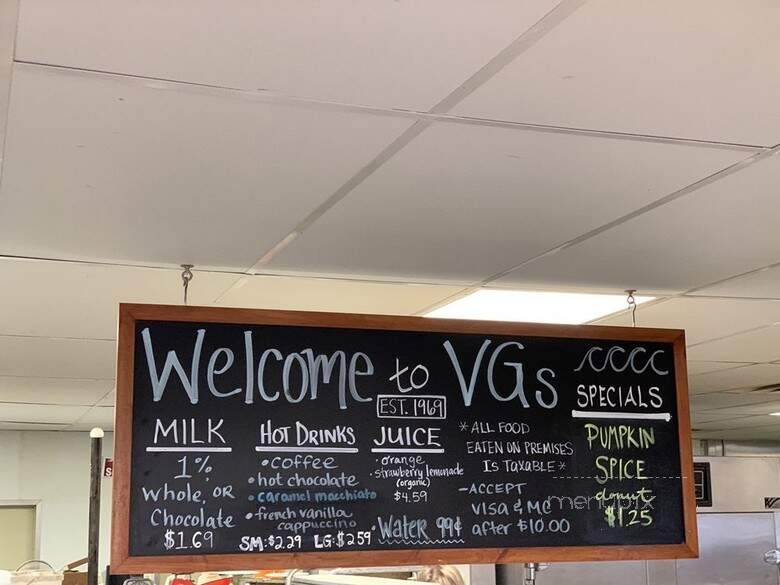 Welcome to VGs
EST. 1969
MILK
1%
whole, or
Chocolate
$1.69
HOT DRINKS
• coffee
• hot chocolate
• caramel macchiato
• french vanilla
cappuccino
SM: $2.29 LG: $2.59
JUICE
• orange
• strawberry lemonade
(organic)
$4.59
• Water 99¢
* ALL FOOD
EATEN ON PREMISES
IS TAXABLE *
- ACCEPT
VISA & MC
after $10.00
SPECIALS
PUMPKIN
SPICE
donut
$1.25
menupix
S